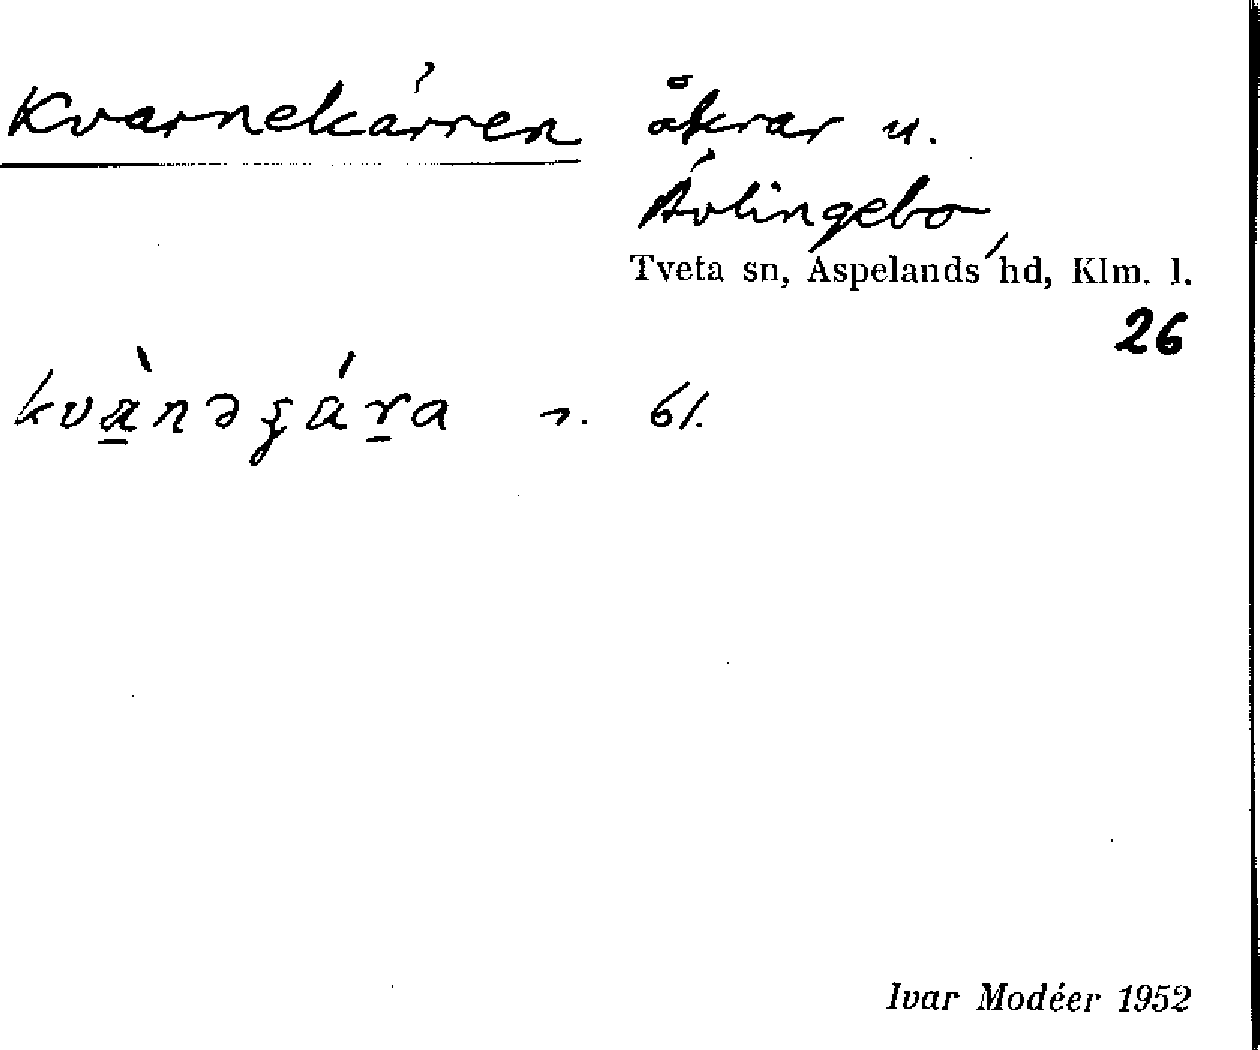 Kvarnekärren åkrar u.
Ävlingebo,
Tveta sn, Aspelands hd, Klm. l.
26
n. bl.
Ivar Modéer 1952